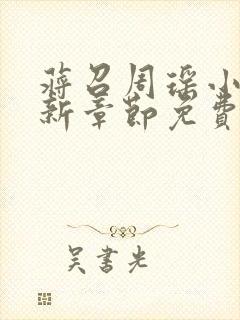 蒋召周瑶小
新章节免费
吴书光